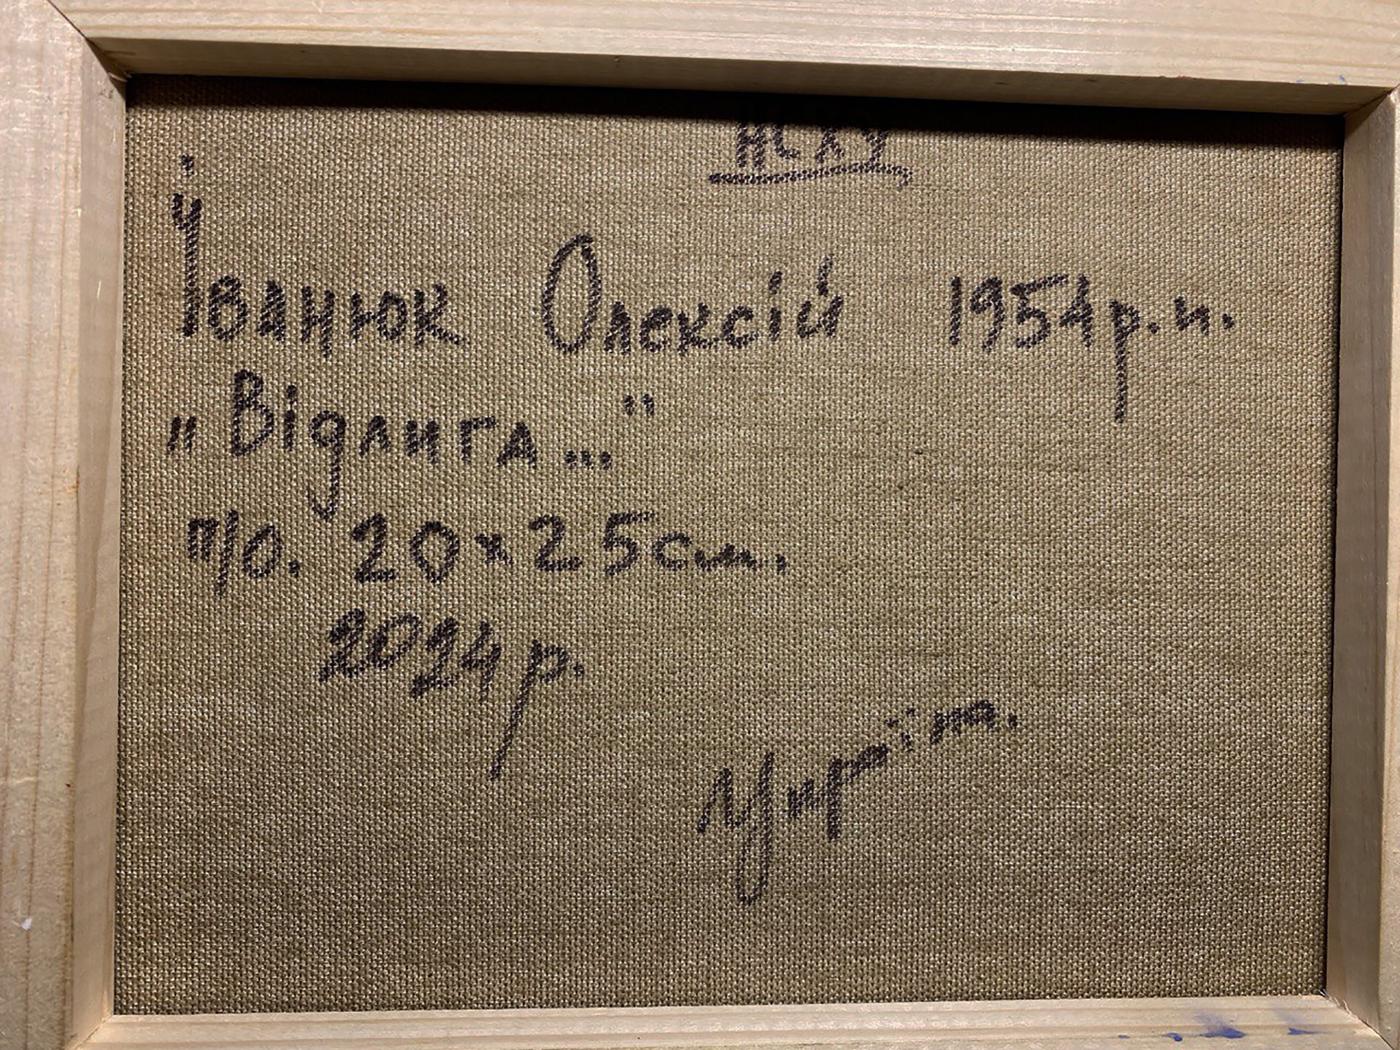 НСХУ
Іванюк Олексій 1954р.н.
„Відлига..."
п/о. 20х25см.
2024р.
Україна.